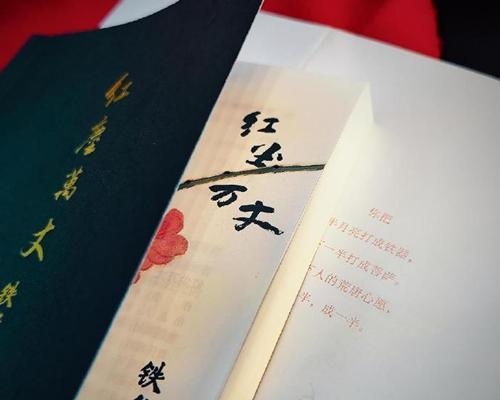 红塵萬丈
铁
红尘万丈
铁
你把
半月亮打成铁器,
一半打成菩萨。
人的荒唐心愿,
半,成一半。